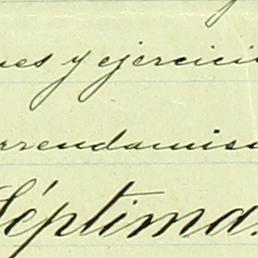 ues y ejercici
rrendamien
Séptima.